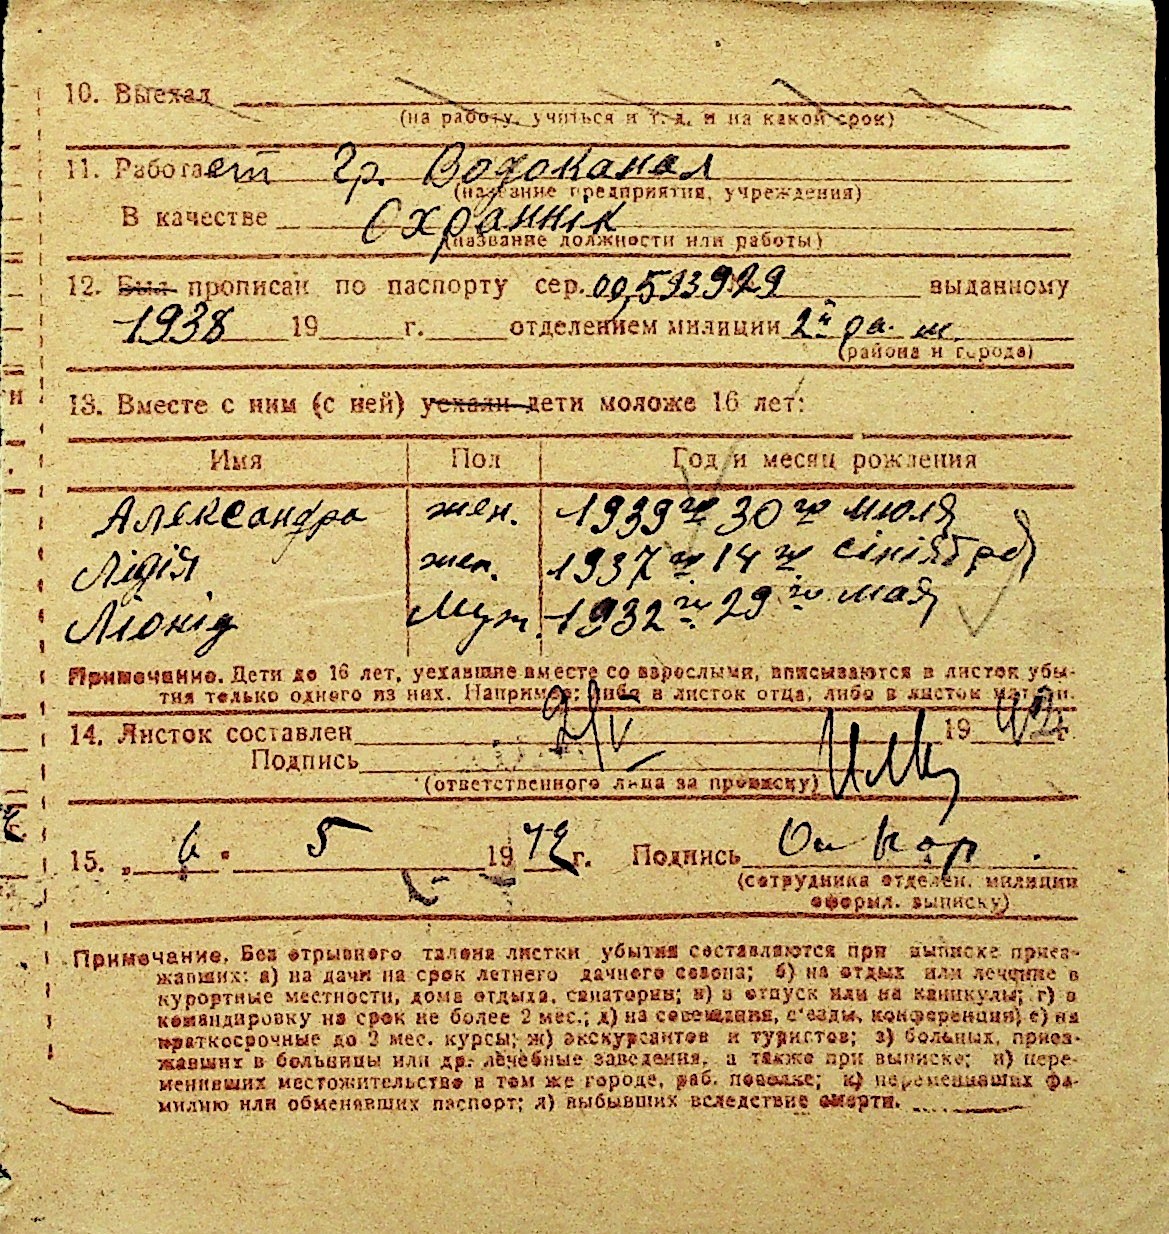 10. Выехал
(на работу, учиться и т. д. и на какой срок)
11. Работает Гр. Водоканал
(название предприятия, учреждения)
В качестве Охраннік
(название должности или работы)
12. Был прописан по паспорту сер. 593929 выданному
1938 19 г. отделением милиции 2й ра. м.
(района и города)
13. Вместе с ним (с ней) уехали дети моложе 16 лет:
Имя Пол Год и месяц рождения
Александра жен. 1939 го 30 го июля
Лідія жен. 1937 го 14 го сінтября
Ліонід Муж. 1932 го 29 го мая
Примечание. Дети до 16 лет, уехавшие вместе со взрослыми, вписываются в листок убы-
тия только одного из них. Например: либо в листок отца, либо в листок матери.
14. Листок составлен 19 г.
Подпись
(ответственного лица за прописку)
15. „ 6 " 5 19 42 г. Подпись
(сотрудника отделен. милиции
оформл. выписку)
Примечание. Без отрывного талона листки убытия составляются при выписке приез-
жавших: а) на дачи на срок летнего дачного сезона; б) на отдых или лечение в
курортные местности, дома отдыха, санатории; в) в отпуск или на каникулы; г) в
командировку на срок не более 2 мес.; д) на совещания, с'езды, конференции; е) на
краткосрочные до 2 мес. курсы; ж) экскурсантов и туристов; з) больных, приез-
жавших в больницы или др. лечебные заведения, а также при выписке; и) пере-
менивших местожительство в том же городе, раб. поселке; к) переменивших фа-
милию или обменявших паспорт; л) выбывших вследствие смерти.